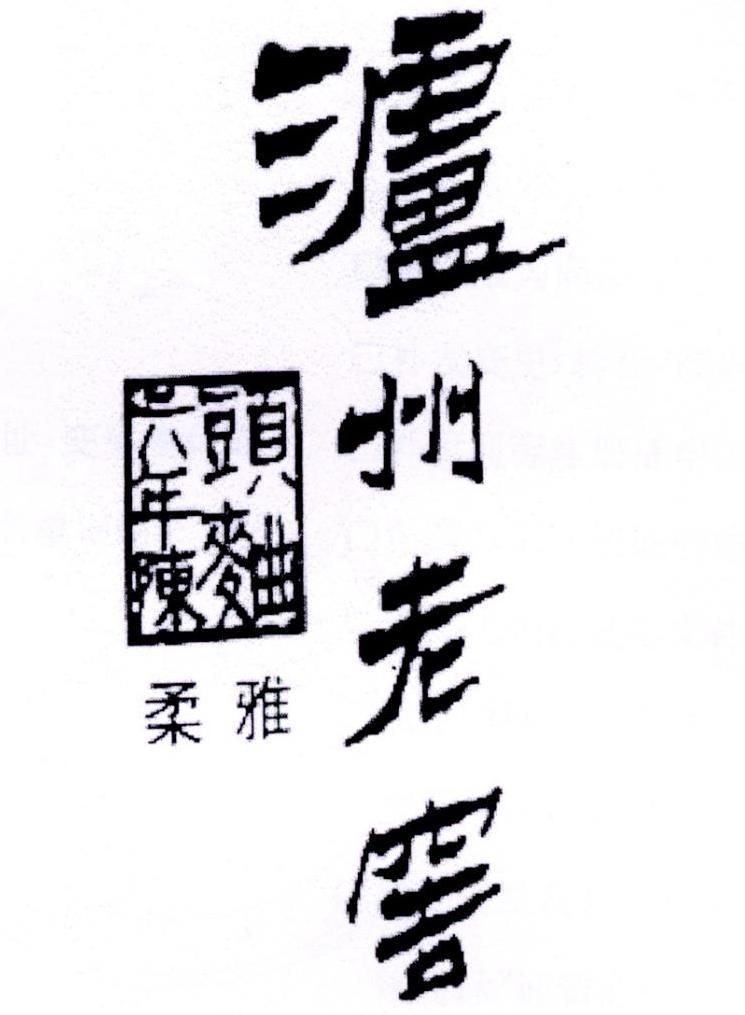 瀘州老窖
頭麯
六年陳
雅柔